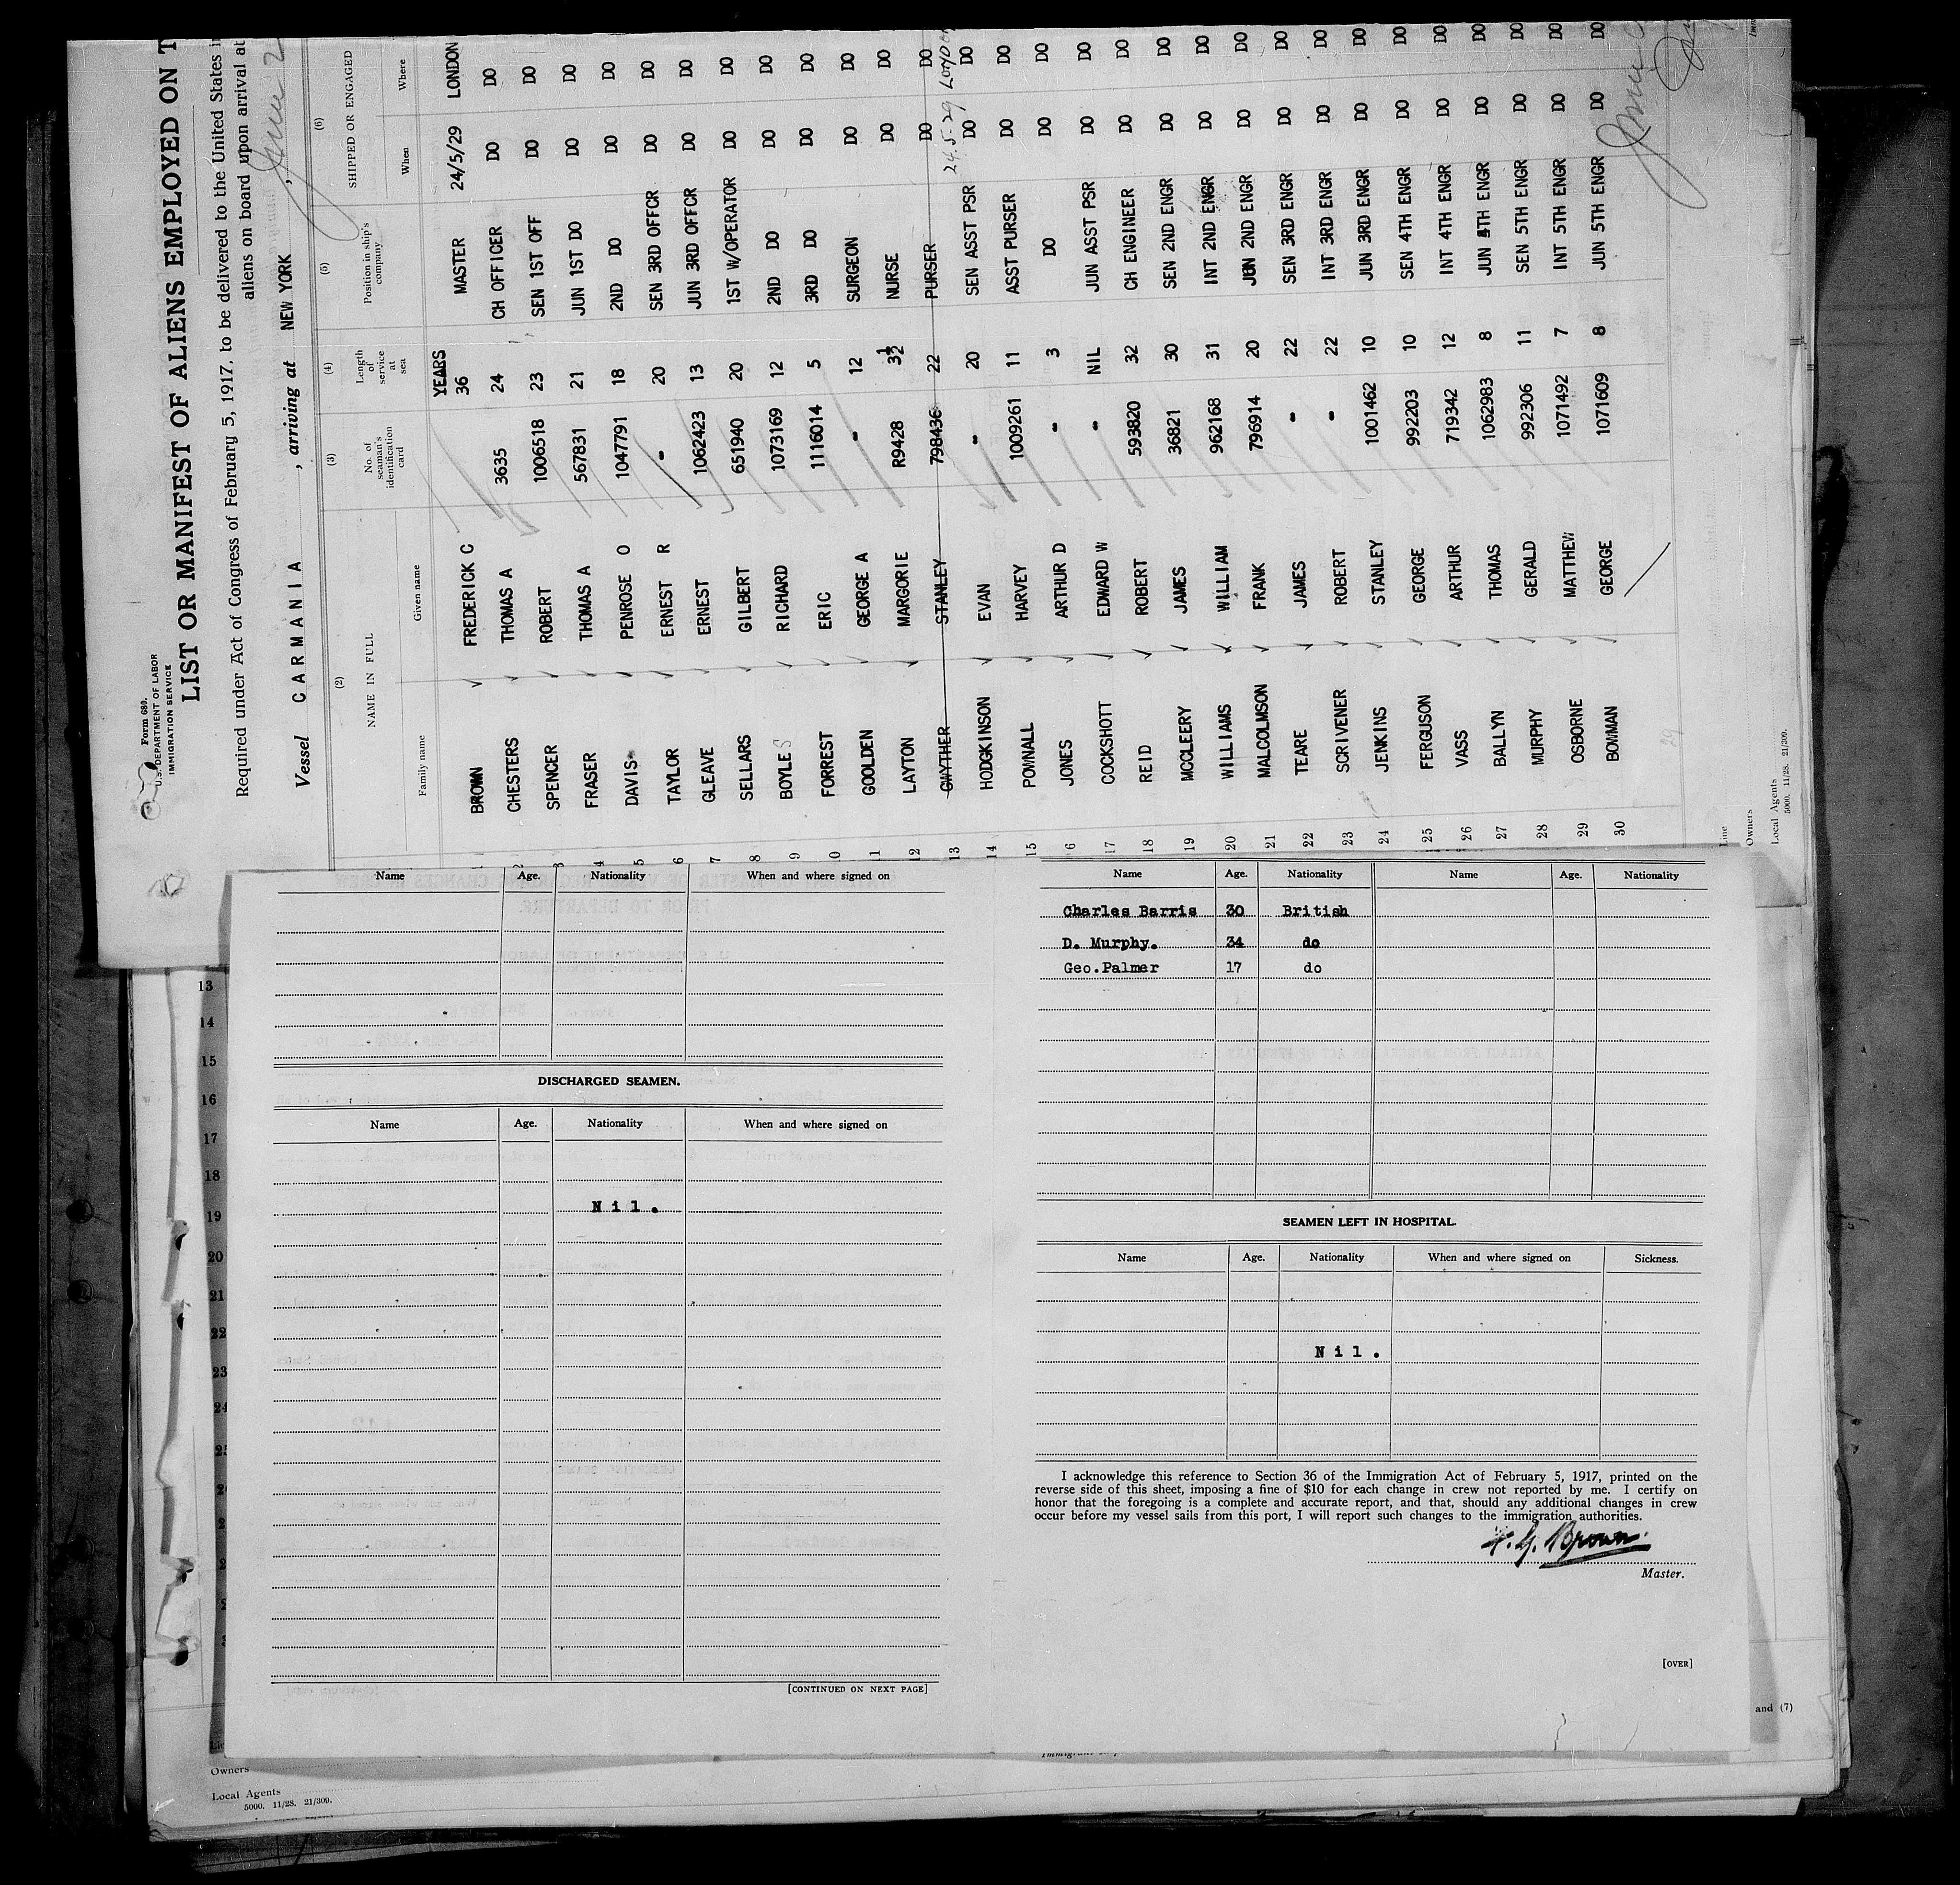 Form 689.
U.S. DEPARTMENT OF LABOR
IMMIGRATION SERVICE
LIST OR MANIFEST OF ALIENS EMPLOYED ON T
Required under Act of Congress of February 5, 1917, to be delivered to the United States i
aliens on board upon arrival at
Vessel CARMANIA , arriving at NEW YORK , June 2
(2) (3) (4) (5) (6)
NAME IN FULL No. of seaman's identification card Length of service at sea Position in ship's company SHIPPED OR ENGAGED
Family name Given name When Where
YEARS
1 BROWN FREDERICK C 36 MASTER 24/5/29 LONDON
2 CHESTERS THOMAS A 3635 24 CH OFFICER DO DO
3 SPENCER ROBERT 1006518 23 SEN 1ST OFF DO DO
4 FRASER THOMAS A 567831 21 JUN 1ST DO DO DO
5 DAVIS PENROSE O 1047791 18 2ND DO DO DO
6 TAYLOR ERNEST R - 20 SEN 3RD OFFCR DO DO
7 GLEAVE ERNEST 1062423 13 JUN 3RD OFFCR DO DO
8 SELLARS GILBERT 651940 20 1ST W/OPERATOR DO DO
9 BOYLES RICHARD 1073169 12 2ND DO DO DO
0 FORREST ERIC 1116014 5 3RD DO DO DO
11 GOOLDEN GEORGE A - 12 SURGEON DO DO
12 LAYTON MARGORIE R9428 NURSE DO DO
13 GWYTHER STANLEY 798436 22 PURSER DO DO
24.5.29 London
14 HODGKINSON EVAN - 20 SEN ASST PSR DO DO
15 POWNALL HARVEY 1009261 11 ASST PURSER DO DO
6 JONES ARTHUR D - 3 DO DO DO
17 COCKSHOTT EDWARD W - NIL JUN ASST PSR DO DO
18 REID ROBERT 593820 32 CH ENGINEER DO DO
19 MCCLEERY JAMES 36821 30 SEN 2ND ENGR DO DO
20 WILLIAMS WILLIAM 962168 31 INT 2ND ENGR DO DO
21 MALCOLMSON FRANK 796914 20 JUN 2ND ENGR DO DO
22 TEARE JAMES - 22 SEN 3RD ENGR DO DO
23 SCRIVENER ROBERT - 22 INT 3RD ENGR DO DO
24 JENKINS STANLEY 1001462 10 JUN 3RD ENGR DO DO
25 FERGUSON GEORGE 992203 10 SEN 4TH ENGR DO DO
26 VASS ARTHUR 719342 12 INT 4TH ENGR DO DO
27 BALLYN THOMAS 1062983 8 JUN 4TH ENGR DO DO
28 MURPHY GERALD 992306 11 SEN 5TH ENGR DO DO
29 OSBORNE MATTHEW 1071492 7 INT 5TH ENGR DO DO
30 BOWMAN GEORGE 1071609 8 JUN 5TH ENGR DO DO
Line
Owners
Local Agents
5000. 11/28. 21/309.
Name Age. Nationality When and where signed on
DISCHARGED SEAMEN.
Name Age. Nationality When and where signed on
Nil.
[CONTINUED ON NEXT PAGE]
Name Age. Nationality Name Age. Nationality
Charles Barris 30 British
D. Murphy. 34 do
Geo.Palmer 17 do
SEAMEN LEFT IN HOSPITAL.
Name Age. Nationality When and where signed on Sickness.
Nil.
I acknowledge this reference to Section 36 of the Immigration Act of February 5, 1917, printed on the
reverse side of this sheet, imposing a fine of $10 for each change in crew not reported by me. I certify on
honor that the foregoing is a complete and accurate report, and that, should any additional changes in crew
occur before my vessel sails from this port, I will report such changes to the immigration authorities.
F. G. Brown
Master.
[OVER]
13
14
15
16
17
18
19
20
21
22
23
24
and (7)
Owners
Local Agents
5000. 11/28. 21/309.